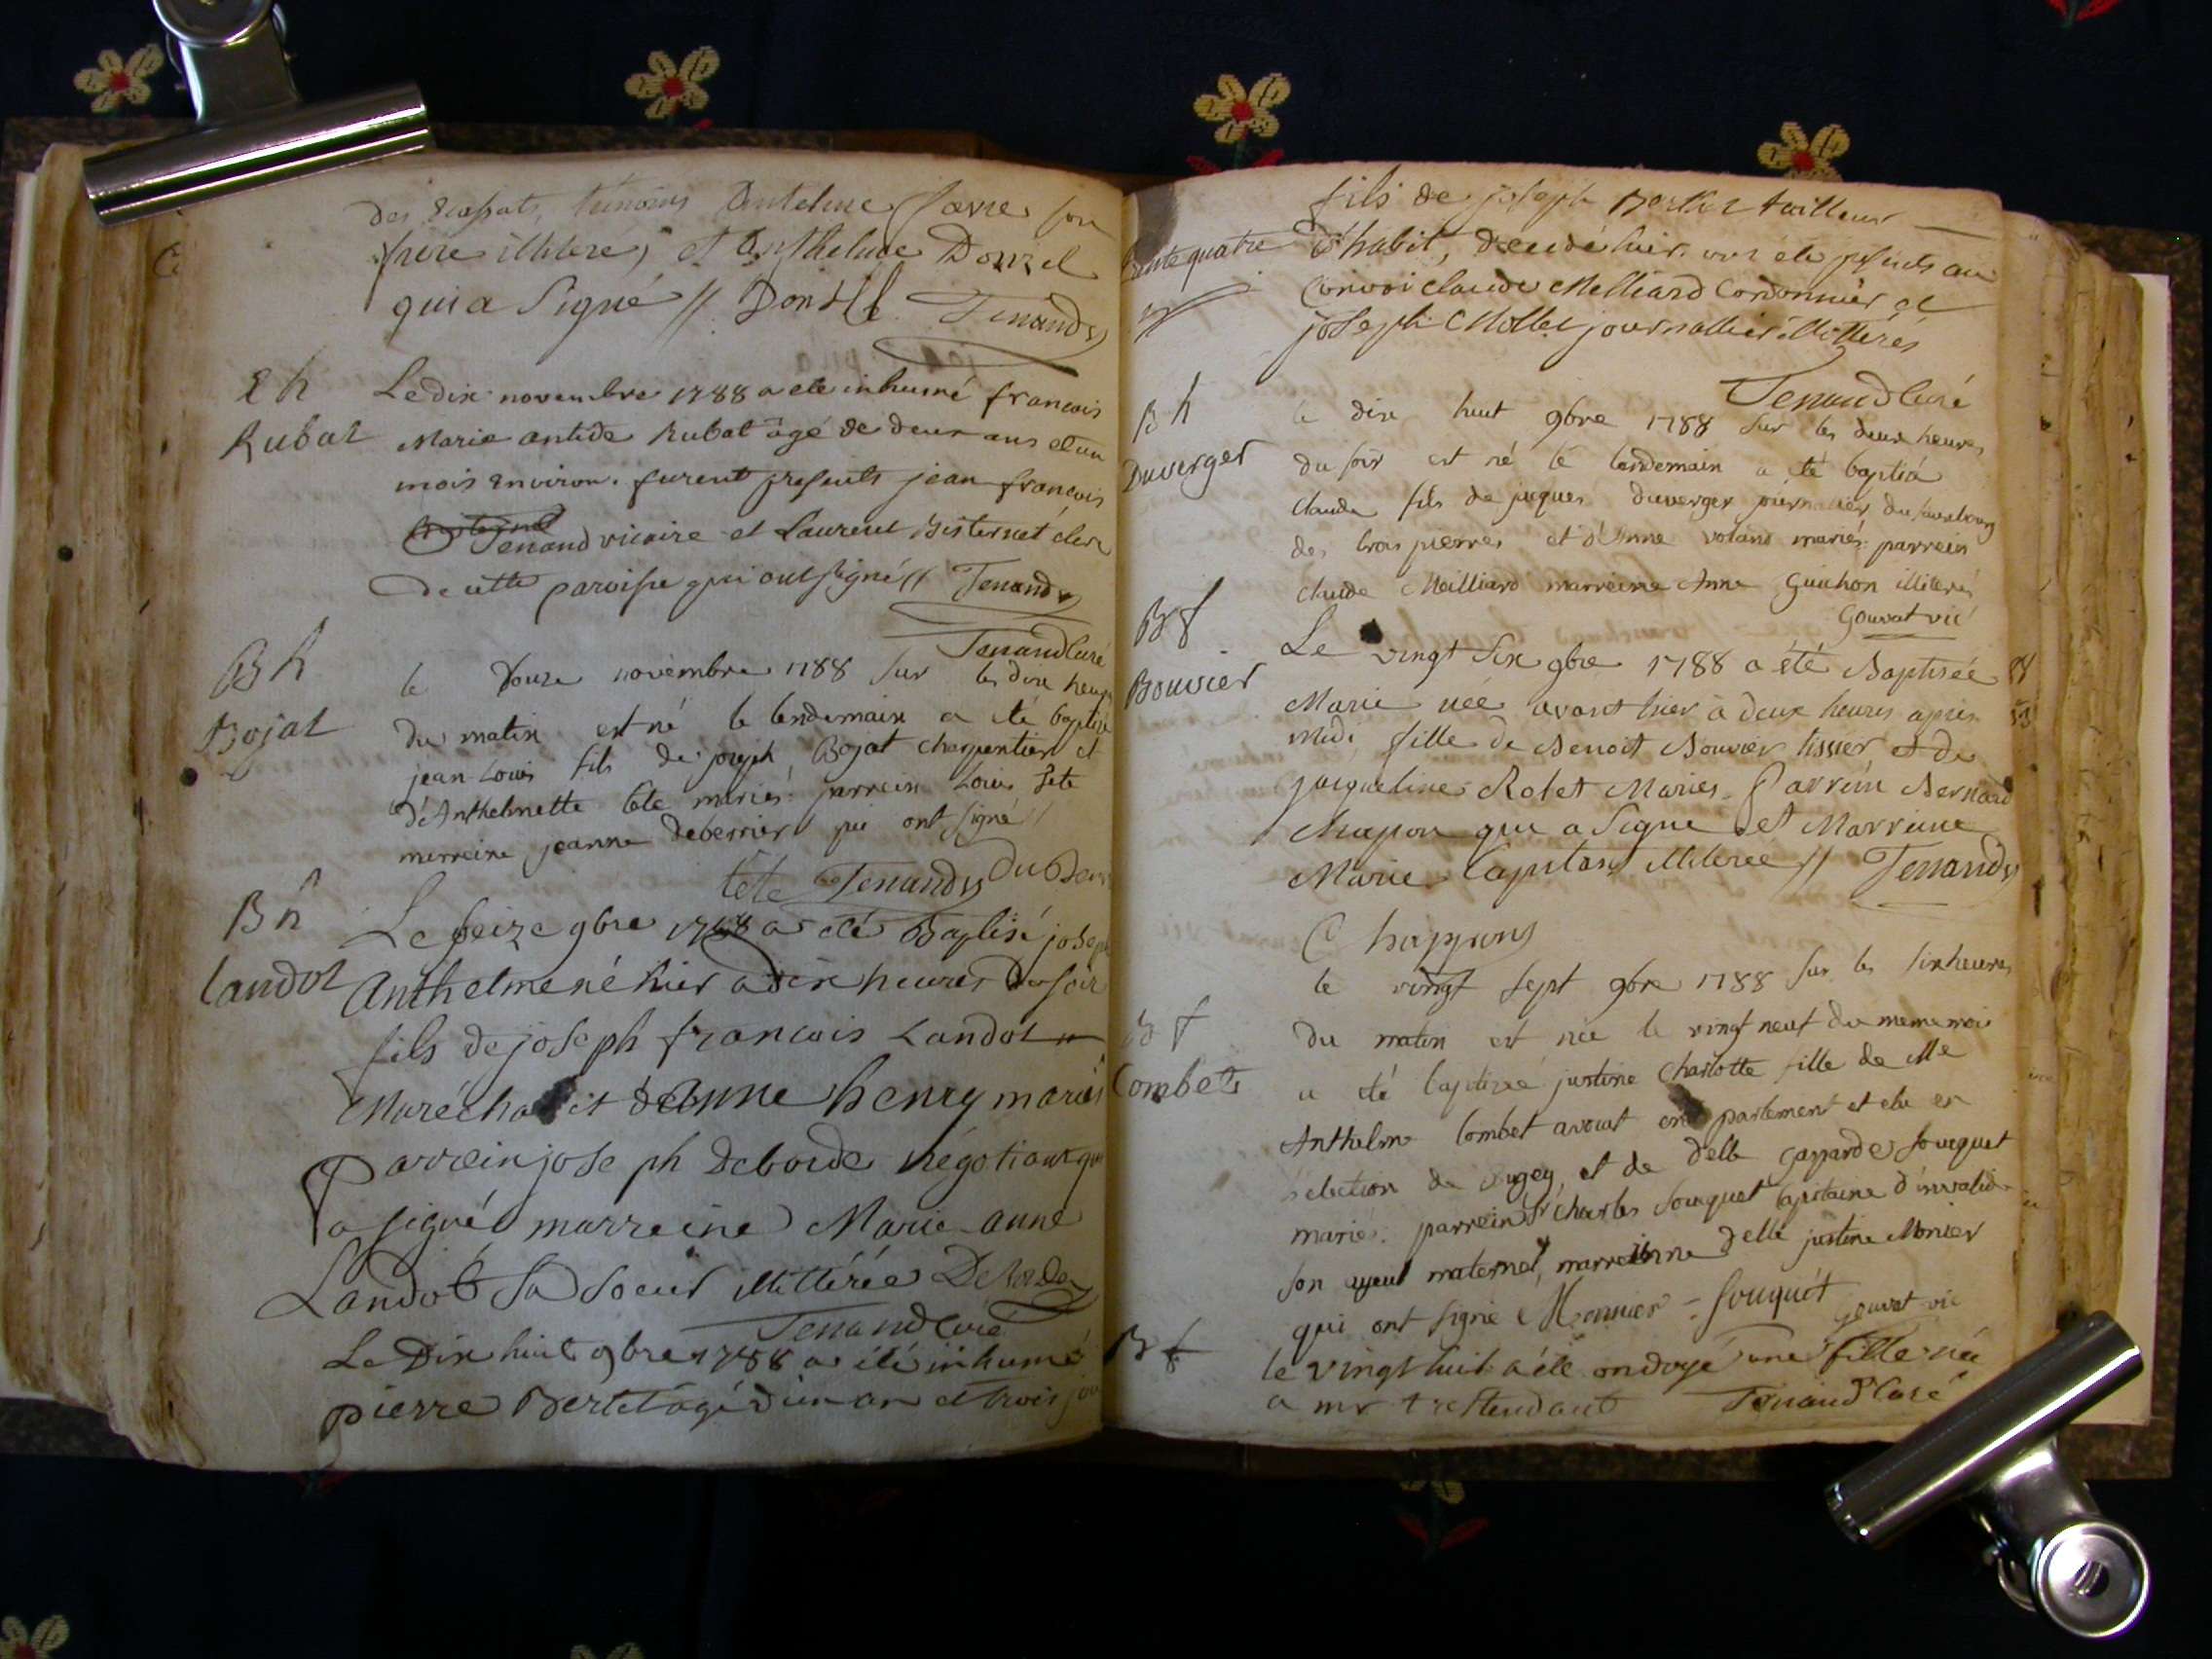 témoins Antelme favre son
frere illitere, et Anthelme Donzel
qui a signé // Donzel Tenand v
E h Le dix novembre 1788 a ete inhumé francois
Rubat Marie antide Rubat âgé de deux ans et un
mois environ. furent presents jean françois
Tenand vicaire et Laurent Bisternet clerc
de cette paroisse qui ont signé // Tenand v
Tenand Curé
B h le Douze novembre 1788 sur les dix heures
Bojat du matin est né le lendemain a été baptisé
jean-Louis fils de joseph Bojat charpentier et
d'Anthelmette tête mariés: parrein Louis tête
merreine jeanne deberrier qui ont signé //
tête Tenand v
B h Le seize 9bre 1788 a eté Baptisé joseph
Landot Anthelme né hier a dix heures du soir
fils de joseph francois Landot
Maréchal et d'Anne henry mariés
Parrein joseph Deborde négotiant qui
a signé marreine Marie-anne
Landot sa soeur illittérée Deborde
Tenand Curé
Le Dix huit 9bre 1788 a été inhumé
pierre Bertet âgé d'un an et trois jou
fils de joseph Bertet tailleur
trente quatre d'habit, decedé hier. ont été presents au
Convoi claude Melliard Cordonnier et
joseph Mollet journallier illittérés
Tenand Curé
B h le dix huit 9bre 1788 sur les deux heures
Duverger du soir est né le lendemain a été baptisé
claude fils de jacques duverger journalier du fauxbourg
des trois pierres et d'Anne voland mariés: parrein
claude Meilliard marreine Anne Guichon illiterés
Gouvat vic
B f Le vingt six 9bre 1788 a été Baptisée
Bouvier Marie née avant hier à deux heures après
midi fille de Benoit Bouvier tissier et de
jacqueline Rolet Mariés. Parrein Bernard
Chapon qui a signé et Marreine
Marie Capitan illiterée // Tenand v
Chappon
le vingt sept 9bre 1788 sur les six heures
B f du matin est née le vingt neuf du meme mois
Combet a été baptisée justine Charlotte fille de Me
Anthelme Combet avocat en parlement et élu en
l'election de Bugey, et de Delle gasparde souquet
mariés: parrein Sr Charles souquet Capitaine d'invalide
son ayeul maternel, marreinne Delle justine Monier
qui ont signé Monnier = souquet Gouvat vic
B f le vingt huit a été ondoyé une fille née
a mr trestendant Tenand Curé